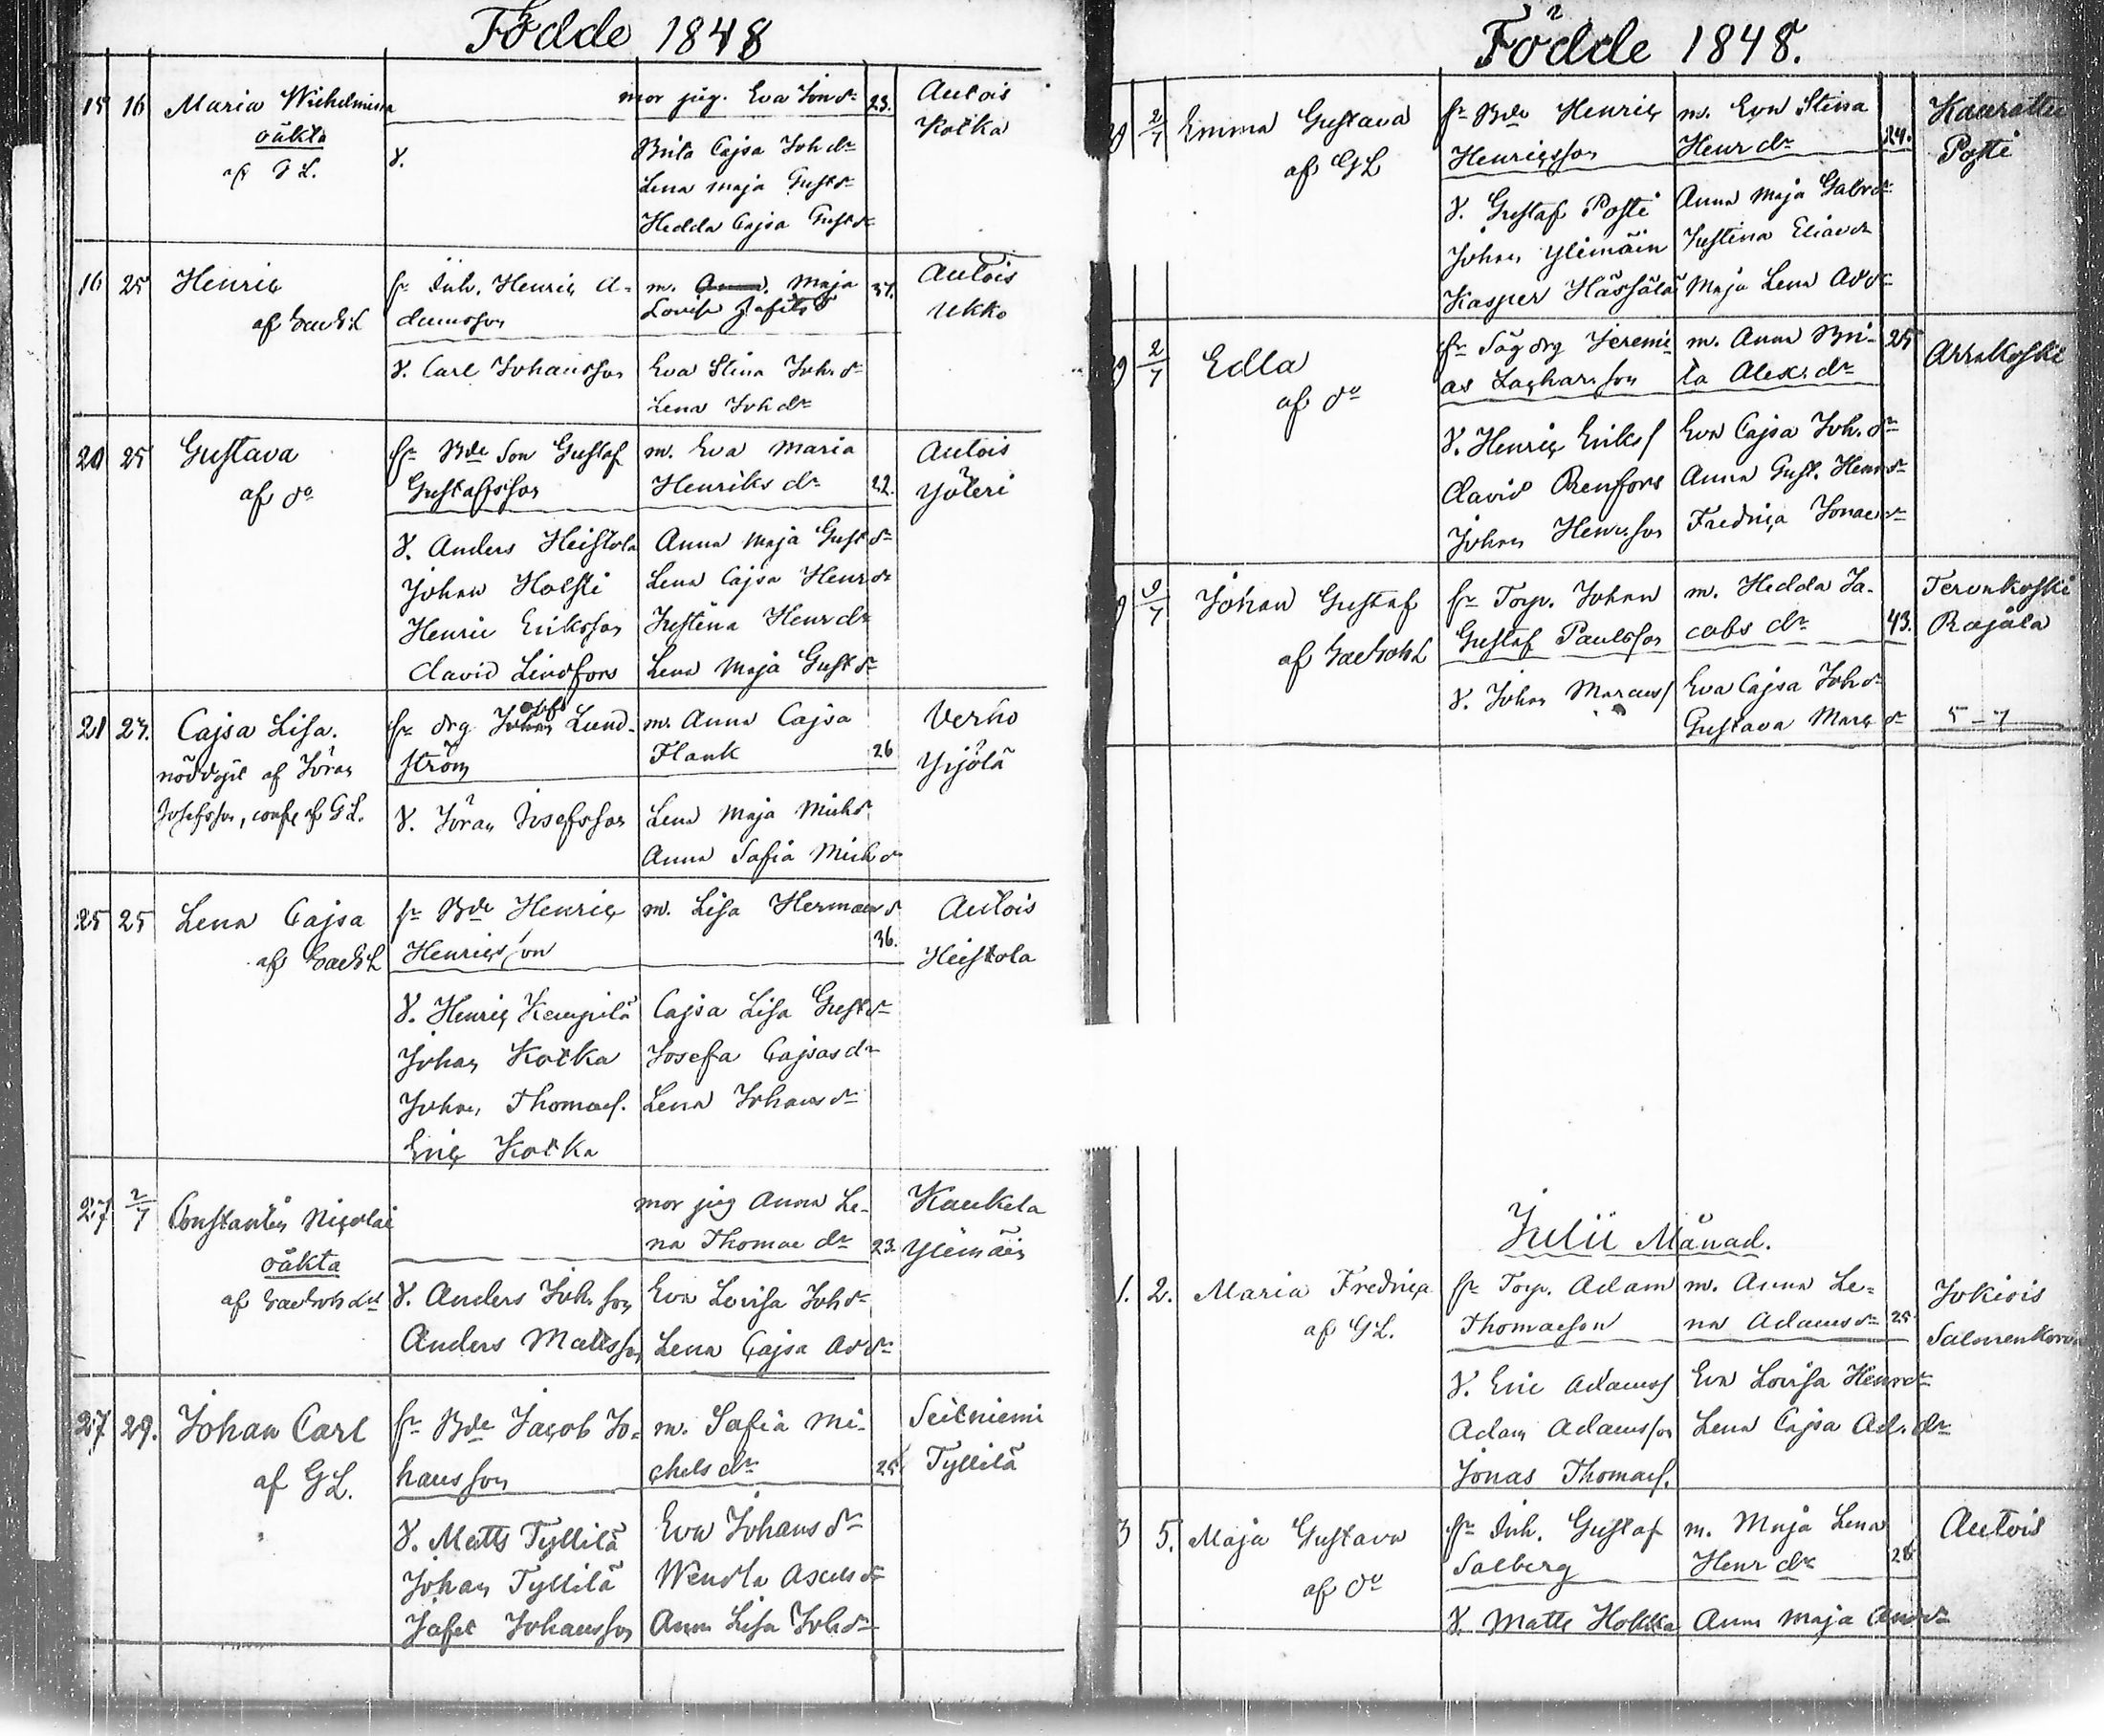 Födde 1848
15 16 Maria Wilhelmina mor pig. Eva Jon dr 23. Autois
oäkta Kotka
af G L. V. Brita Cajsa Joh dr
Lena Maja Gust dr
Hedda Cajsa Gust dr
16 25 Henric fr Inh. Henric A- m. Maja 37. Autois
damsson Lovisa Ukko
V. Carl Johansson Eva Stina Joh. dr
Lena Joh dr
20 25 Gustava fr Bde Son Gustaf m. Eva Maria Autois
af do Gustafsson Henriks dr 22. Yöleri
V. Anders Heistola Anna Maja Gust dr
Johan Holsti Lena Cajsa Henr dr
Henric Eriksson Justina Henr dr
David Lindfors Lena Maja Gust dr
21 27. Cajsa Lisa. fr drg Lund- m. Anna Cajsa Verho
nöddöpt af Jöran ström Flank 26 Yijölä
Josefsson, conf. af G.L. V. Jöran Josefsson Lena Maja Mich dr
Anna Safia Mich dr
25 25 Lena Cajsa fr Bde Henric m. Lisa Hermans d Autois
Henricsson 36. Heistola
V. Henric Kempilä Cajsa Lisa Gust dr
Johan Kotka Josefa Cajsas dr
Johan Thomas. Lena Johans dr
Eric Kotka
27 2/7 Constantin Nicolai mor pig Anna Le- Kaukela
oäkta na Thomae dr 23. Ylimäin
V. Anders Joh. son Eva Lovisa Joh dr
Anders Matsson Lena Cajsa Ad dr
27 29. Johan Carl fr Bde Jacob Jo- m. Safia Mi- Seitniemi
af G L. hansson chels dr 25 Tyllilä
V. Matts Tyllilä Eva Johans dr
Johan Tyllilä Wendla dr
Jafet Johansson Anna Lisa Joh dr
Födde 1848.
2/7 Emma Gustava fr Bde Henric m. Eva Stina
af G L Henricsson Henr dr 24. Posti
V. Gustaf Posti Anna Maja Gabr dr
Johan Ylimäin Justina Elias dr
Kasper Hässälä Maja Lena Ad dr
2/7 Edla fr Jeremi- m. Anna Bri- 25 Arrakoski
af do as Zacharsson ta Alex. dr
V. Henric Eriks Eva Cajsa Joh. dr
David Renfors Anna Gust. Henr dr
Johan Henrsson Fredrica Jonae dr
9/7 Johan Gustaf fr Torp. Johan m. Hedda Ja- Terenkoski
Gustaf Paulsson cobs dr 43. Rajala
V. Johan Marcus Eva Cajsa Joh dr
Gustava Marc dr 5-7
Julii Månad.
1. 2. Maria Fredrica fr Torp. Adam m. Anna Le- Jokiois
af G L. Thomasson na Adams dr 25
V. Eric Adams Eva Lovisa Henr dr
Adam Adamsson Lena Cajsa Ad. dr
Jonas Thomas.
3 5. Maja Gustava fr Inh. Gustaf m. Maja Lena Autois
af do Salberg Henr dr 28
V. Matts Hokka Anna Maja And dr